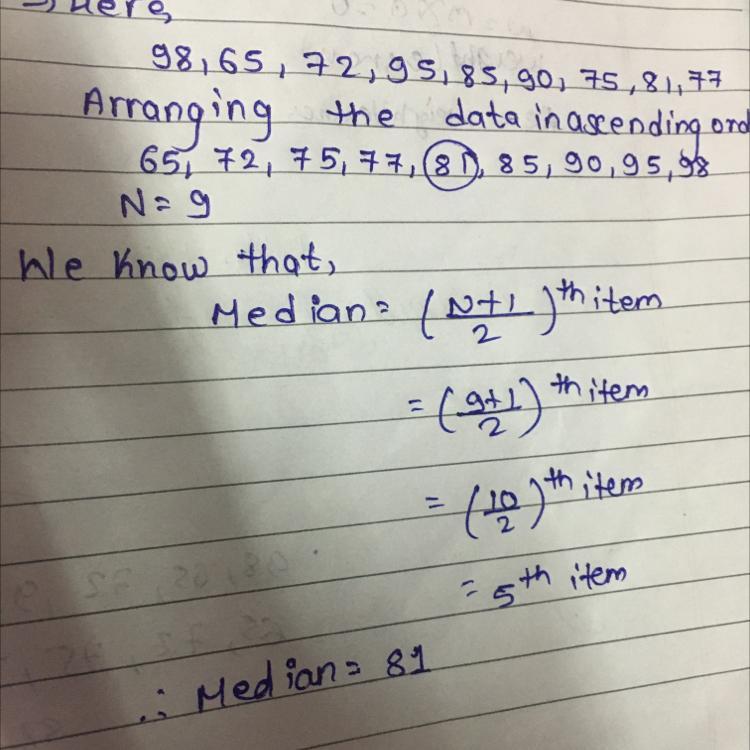 → Here,
98, 65, 72, 95, 85, 90, 75, 81, 77
Arranging the data in ascending ord
65, 72, 75, 77, 81, 85, 90, 95, 98
N = 9
We know that,
Median = (N+1/2)th item
= (9+1/2)th item
= (10/2)th item
= 5th item
∴ Median = 81